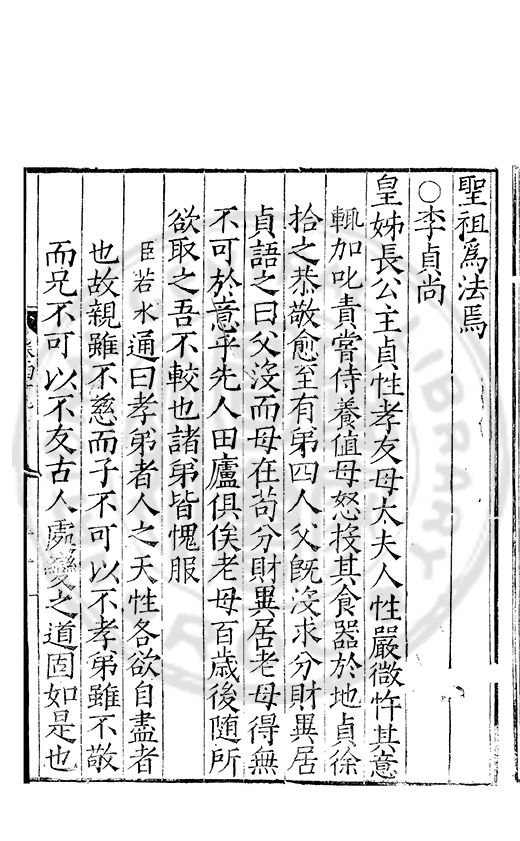 聖祖爲法焉
○李貞尚
皇姊長公主貞性孝友母太夫人性嚴微忤其意
輒加叱責嘗侍養值母怒投其食器於地貞徐
拾之恭敬愈至有弟四人父旣沒求分財異居
貞語之曰父沒而母在苟分財異居老母得無
不可於意乎先人田廬俱俟老母百歲後隨所
欲取之吾不較也諸弟皆愧服
臣若水通曰孝弟者人之天性各欲自盡者
也故親雖不慈而子不可以不孝弟雖不敬
而兄不可以不友古人處變之道固如是也